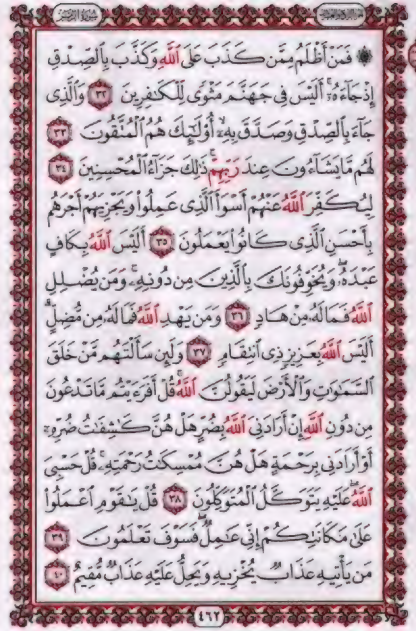 سُورَةُ الزُّمَرِ
فَمَنْ أَظْلَمُ مِمَّن كَذَبَ عَلَى ٱللَّهِ وَكَذَّبَ بِٱلصِّدْقِ
إِذْ جَآءَهُۥٓ أَلَيْسَ فِى جَهَنَّمَ مَثْوًى لِّلْكَـٰفِرِينَ ٣٢ وَٱلَّذِى
جَآءَ بِٱلصِّدْقِ وَصَدَّقَ بِهِۦٓ أُو۟لَـٰٓئِكَ هُمُ ٱلْمُتَّقُونَ ٣٣
لَهُم مَّا يَشَآءُونَ عِندَ رَبِّهِمْ ذَٰلِكَ جَزَآءُ ٱلْمُحْسِنِينَ ٣٤
لِيُكَفِّرَ ٱللَّهُ عَنْهُمْ أَسْوَأَ ٱلَّذِى عَمِلُوا۟ وَيَجْزِيَهُمْ أَجْرَهُم
بِأَحْسَنِ ٱلَّذِى كَانُوا۟ يَعْمَلُونَ ٣٥ أَلَيْسَ ٱللَّهُ بِكَافٍ
عَبْدَهُۥ وَيُخَوِّفُونَكَ بِٱلَّذِينَ مِن دُونِهِۦ وَمَن يُضْلِلِ
ٱللَّهُ فَمَا لَهُۥ مِنْ هَادٍ ٣٦ وَمَن يَهْدِ ٱللَّهُ فَمَا لَهُۥ مِن مُّضِلٍّ
أَلَيْسَ ٱللَّهُ بِعَزِيزٍ ذِى ٱنتِقَامٍ ٣٧ وَلَئِن سَأَلْتَهُم مَّنْ خَلَقَ
ٱلسَّمَـٰوَٰتِ وَٱلْأَرْضَ لَيَقُولُنَّ ٱللَّهُ قُلْ أَفَرَءَيْتُم مَّا تَدْعُونَ
مِن دُونِ ٱللَّهِ إِنْ أَرَادَنِىَ ٱللَّهُ بِضُرٍّ هَلْ هُنَّ كَـٰشِفَـٰتُ ضُرِّهِۦٓ
أَوْ أَرَادَنِى بِرَحْمَةٍ هَلْ هُنَّ مُمْسِكَـٰتُ رَحْمَتِهِۦ قُلْ حَسْبِىَ
ٱللَّهُ عَلَيْهِ يَتَوَكَّلُ ٱلْمُتَوَكِّلُونَ ٣٨ قُلْ يَـٰقَوْمِ ٱعْمَلُوا۟
عَلَىٰ مَكَانَتِكُمْ إِنِّى عَـٰمِلٌ فَسَوْفَ تَعْلَمُونَ ٣٩
مَن يَأْتِيهِ عَذَابٌ يُخْزِيهِ وَيَحِلُّ عَلَيْهِ عَذَابٌ مُّقِيمٌ ٤٠
٤٦٢